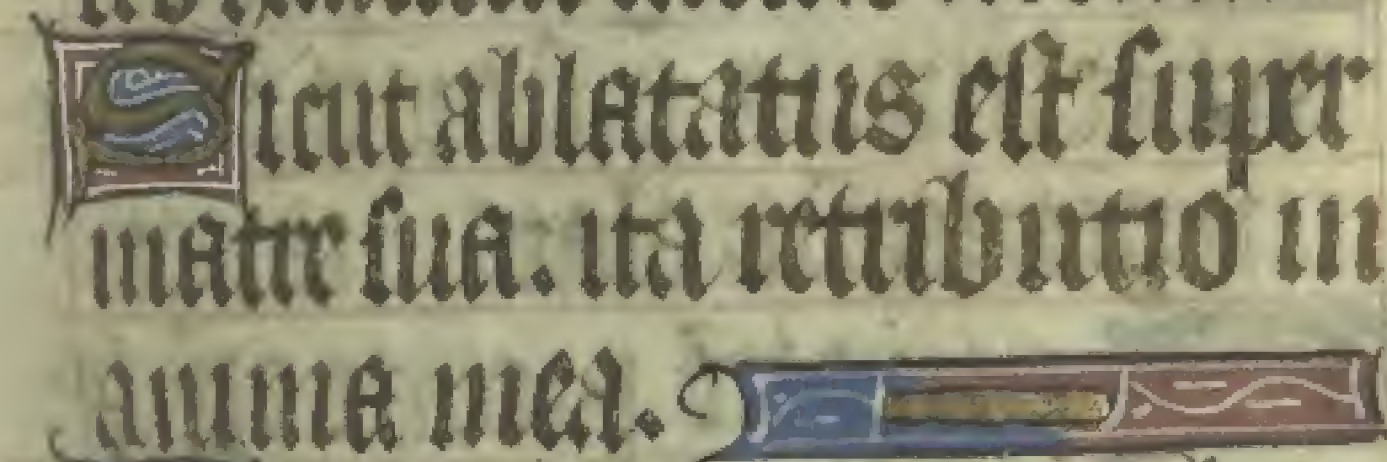 Sicut ablatatus est super
matre sua. ita retributio in
anima mea.